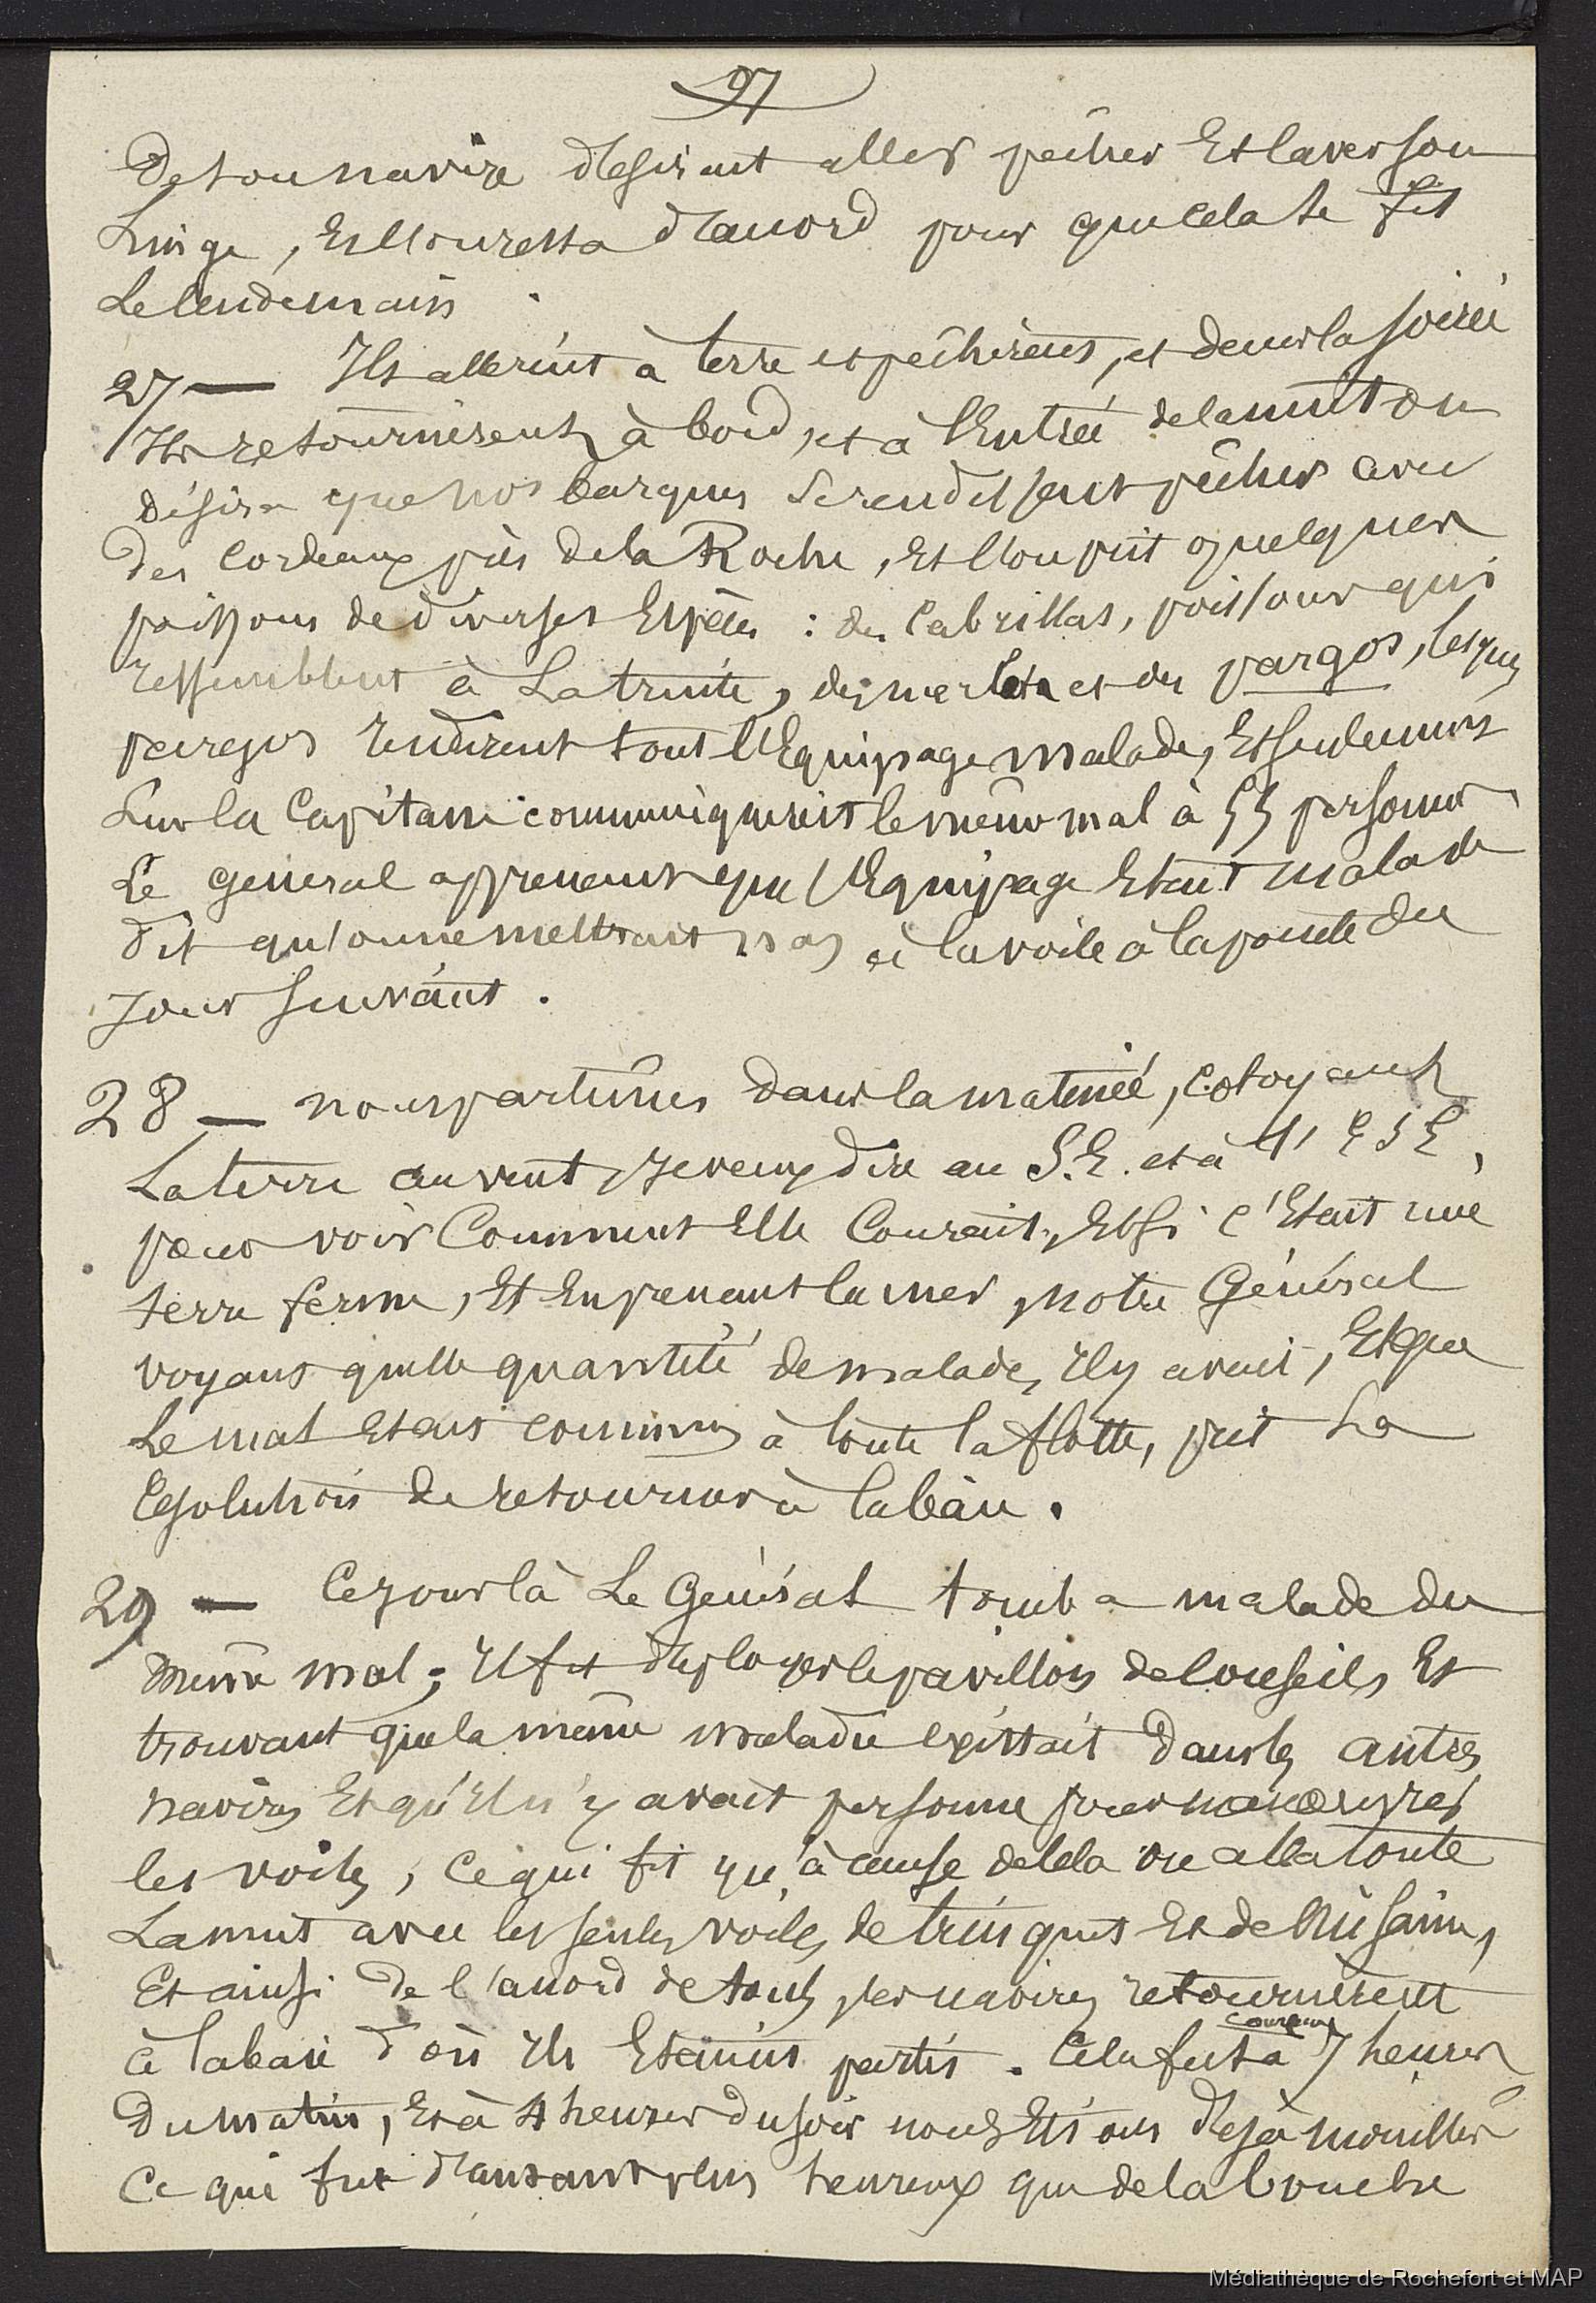 97
De son navire désirant aller pêcher Et laver son
Linge, Et l'on resta d'accord pour que cela se fît
Le lendemain.
27 — Ils allèrent à terre et pêchèrent, et dans la soirée
Ils retournèrent à bord, et à l'Entrée de la nuit on
désira que nos barques se rendissent pêcher avec
des cordeaux près de la Roche, Et l'on prit quelques
poissons de diverses Espèces : des Cabrillas, poissons qui
ressemblent à La truite, des merles et des pargos, lesquels
pargos rendirent tout l'Equipage malade, Et seulement
Sur la Capitane communiquèrent le même mal à 55 personnes
Le général apprenant que l'Equipage Etait malade
dit qu'on ne mettrait pas à la voile à la pointe du
Jour suivant.
28 — nous partîmes dans la matinée, cotoyant
La terre au vent, Je veux dire au S.E. et à l' E S E,
pour voir Comment Elle Courait, Et si c'Etait une
terre ferme, Et En prenant la mer, notre Général
voyant quelle quantité de malades Il y avait, Et que
Le mal Etait commun à toute la flotte, prit La
résolution de retourner à la baie.
29 — Ce jour là Le Général tomba malade du
même mal; Il fit déployer le pavillon de Conseil, Et
trouvant que la même maladie existait dans les autres
navires Et qu'Il n'y avait personne pour manœuvrer
les voiles, Ce qui fit qu'à cause de cela on alla toute
La nuit avec les seules voiles de trinquet Et de Misaine,
Et ainsi de l'accord de tous, les navires retournèrent
à la baie d'où Ils Etaient partis. Cela fut à 7 heures
du matin, Et à 4 heures du soir nous Etions déjà mouillés
Ce qui fut d'autant plus heureux que de la bouche
Médiathèque de Rochefort et MAP